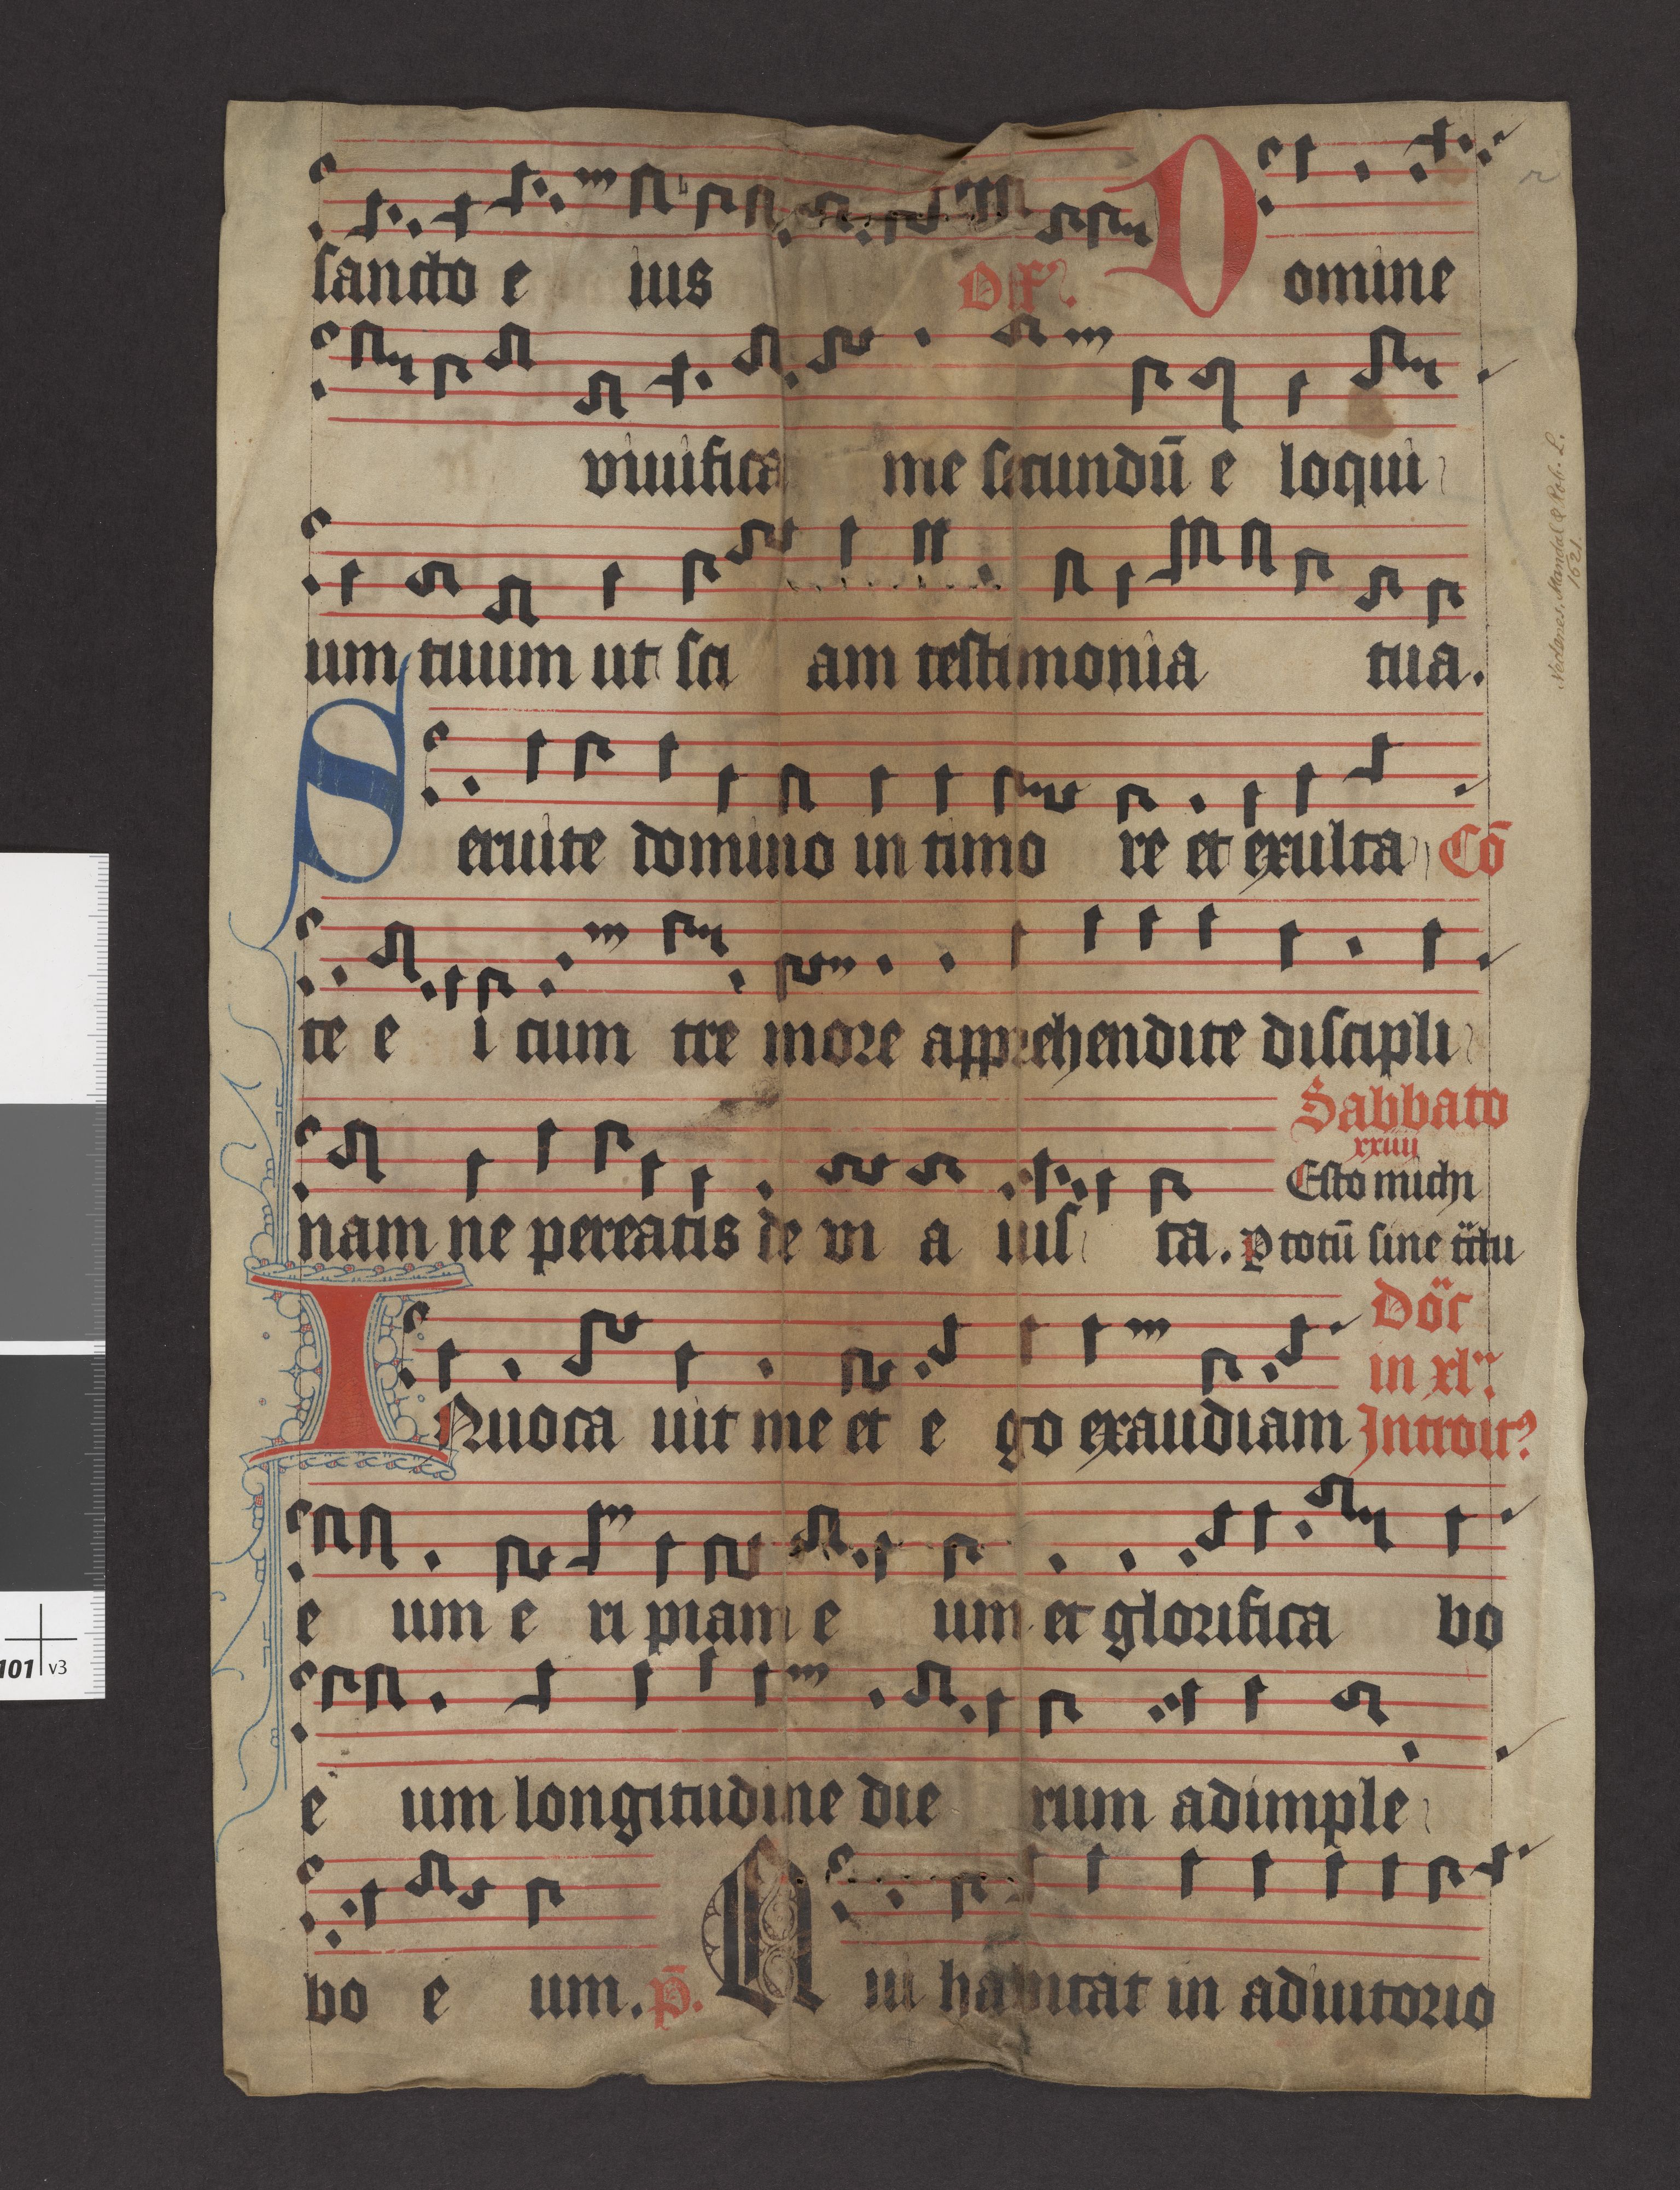 sancto e ius Off. Domine
viuifica me secundū e loqui
um tuum ut sci am testimonia tua.
Seruite domino in timo re et exulta Cō
te e i cum tre more apprehendite discipli
Sabbato
xxiiii
Esto michi
nam ne pereatis de vi a ius ta. p totū sine
Do
in xl
INuoca uit me et e go exaudiam Introit
e um e ri piam e um et glorifica bo
e um longitudine die rum adimple
bo e um. p̄. Qui habitat in adiutorio
Nedenes, Mandal & Rob. L.
1621.
r
101 v3